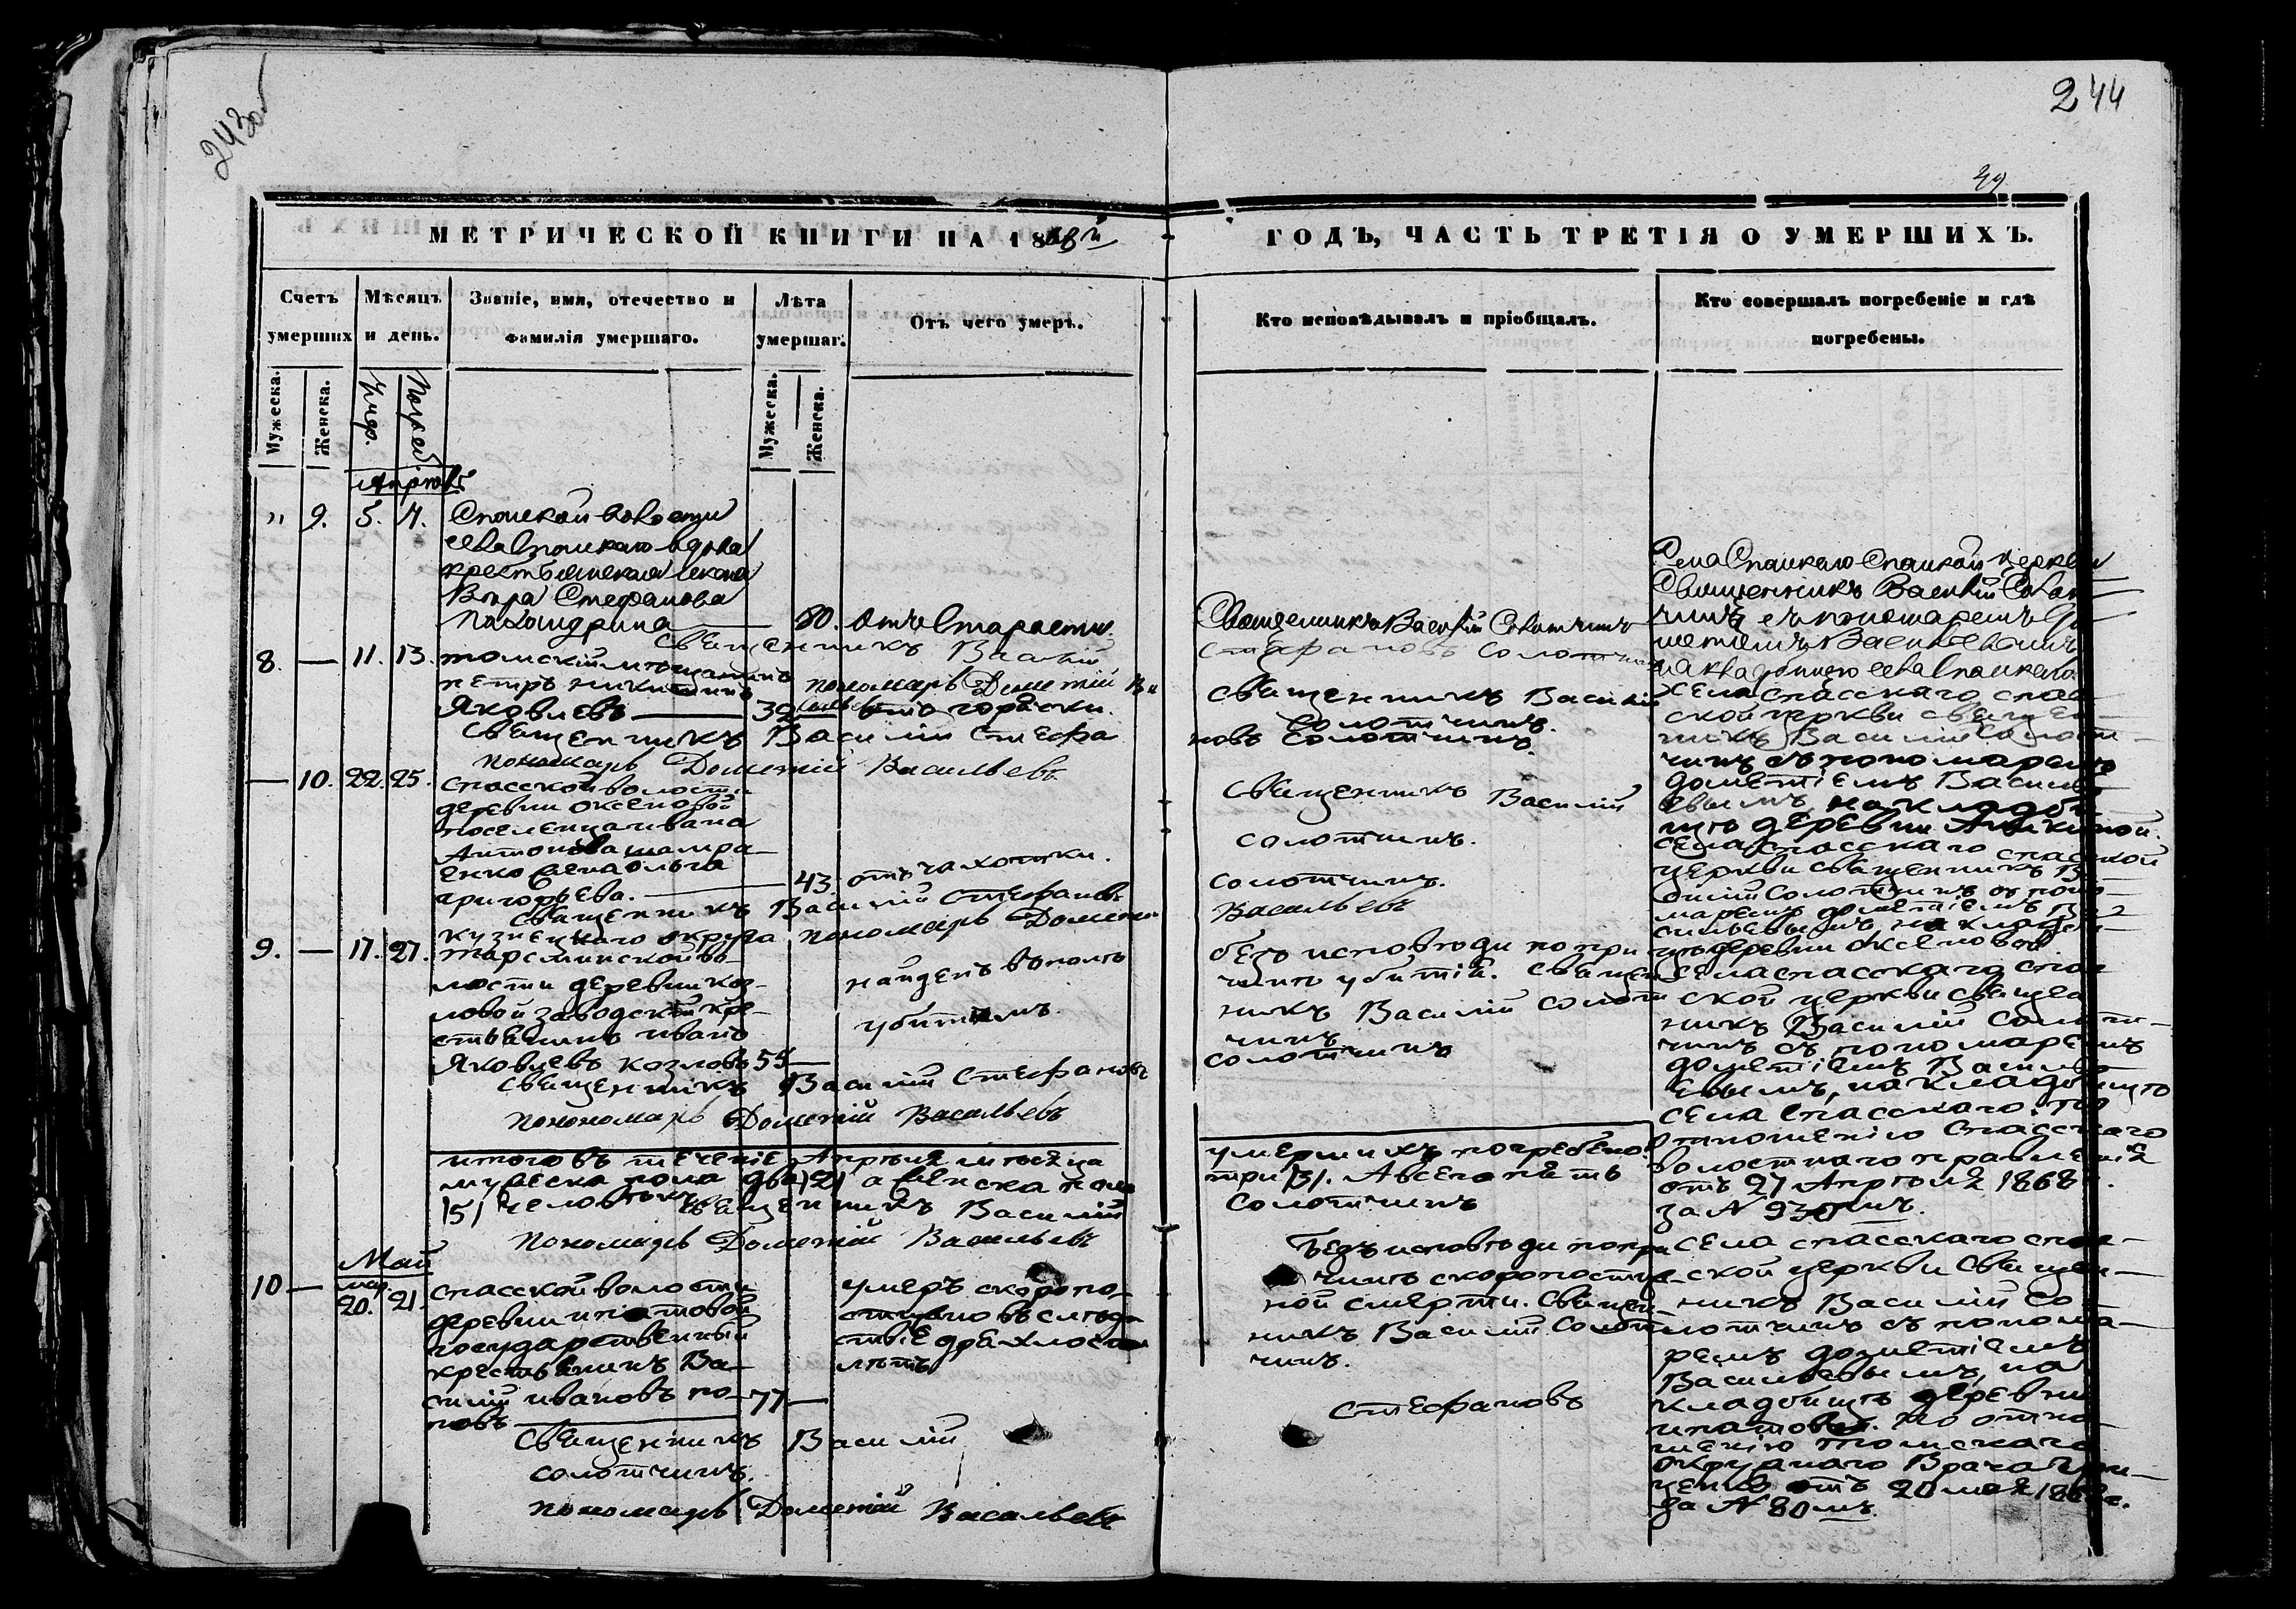 243об
244
49
МЕТРИЧЕСКОЙ КНИГИ НА 1868й
ГОДЪ, ЧАСТЬ ТРЕТІЯ О УМЕРШИХЪ.
Счетъ умерших
Мѣсяцъ и день.
Званіе, имя, отечество и фамилія умершаго.
Лѣта умершаг.
Отъ чего умеръ.
Кто исповѣдывалъ и пріобщалъ.
Кто совершалъ погребеніе и гдѣ погребены.
Мужеска.
Женска.
Умер.
Погреб.
Мужеска.
Женска.
Апрѣль
" 9. 5. 7.
Спаской волости
села Спаскаго вдова
крестьянская жена
Вѣра Стефанова
80. отъ Старости.
Священникъ Василій Солотчинъ
Села Спаскаго Спаской церкви
Священникъ Василій Солот
чинъ съ пономаремъ До
метіемъ Васильевымъ
на кладбищѣ села Спаскаго
8. — 11. 13.
томскій мѣщанинъ
петръ никитинъ
Яковлевъ — 32 — отъ горячки.
священникъ Василій
стефановъ солотчинъ
пономарь Дометій Ва
сильевъ
священникъ Василій
солотчинъ.
села спасскаго спас
ской церкви священ
никъ Василій солот
чинъ съ пономаремъ
дометіемъ Василь
евымъ, на кладби
щѣ деревни Аникиной.
священникъ Василій стефа
новъ солотчинъ.
пономарь Дометій Васильевъ
— 10. 22. 25.
спасской волости
деревни оксеновой
поселенца ивана
Антонова
жена ольга
григорьева. — 43. отъ чахотки.
священникъ Василій
солотчинъ.
села спасскаго спасской
церкви священникъ Ва
силій солотчинъ съ поно
маремъ дометіемъ Ва
сильевымъ, на кладби
щѣ деревни оксеновой
священникъ Василій стефановъ
солотчинъ.
пономарь Дометій
Васильевъ
9. — 17. 27.
кузнецкаго округа
тарсминской во
лости деревни коз
ловой заводской кре
стьянинъ иванъ
Яковлевъ козловъ 55 —
найденъ въ полѣ
убитымъ.
безъ исповѣди по при
чинѣ убитія. священ
никъ Василій солот
чинъ
села спасскаго спас
ской церкви священ
никъ Василій солот
чинъ съ пономаремъ
дометіемъ Василь
евымъ, на кладбищѣ
села спасскаго. по
отношенію спасскаго
волостнаго правленія
отъ 27 Апрѣля 1868 г.
за N 930мъ.
священникъ Василій стефановъ
солотчинъ
пономарь Дометій Васильевъ
итого въ теченіе Апрѣля мѣсяца
умершихъ погребено:
мужеска пола два /2/ а женска пола
три /3/. А всего пять
/5/ человѣкъ
священникъ Василій
солотчинъ
пономарь Дометій Васильевъ
Май
10 — 20. 21.
спасской волости
деревни ипатовой
государственный
крестьянинъ Ва
силій ивановъ по
повъ — 77 —
умеръ скоропо
стижно въ слѣд
ствіе дряхлости
лѣтъ
Безъ исповѣди по при
чинѣ скоропостиж
ной смерти. священ
никъ Василій солот
чинъ.
села спасскаго спас
ской церкви Священ
никъ Василій Со
лотчинъ съ понома
ремъ дометіемъ
Васильевымъ, на
кладбищѣ деревни
ипатовой. по отно
шенію томскаго
окружнаго Врача
отъ 20 мая 1868 г.
за N 80мъ.
священникъ Василій
стефановъ
солотчинъ.
пономарь Дометій Васильевъ